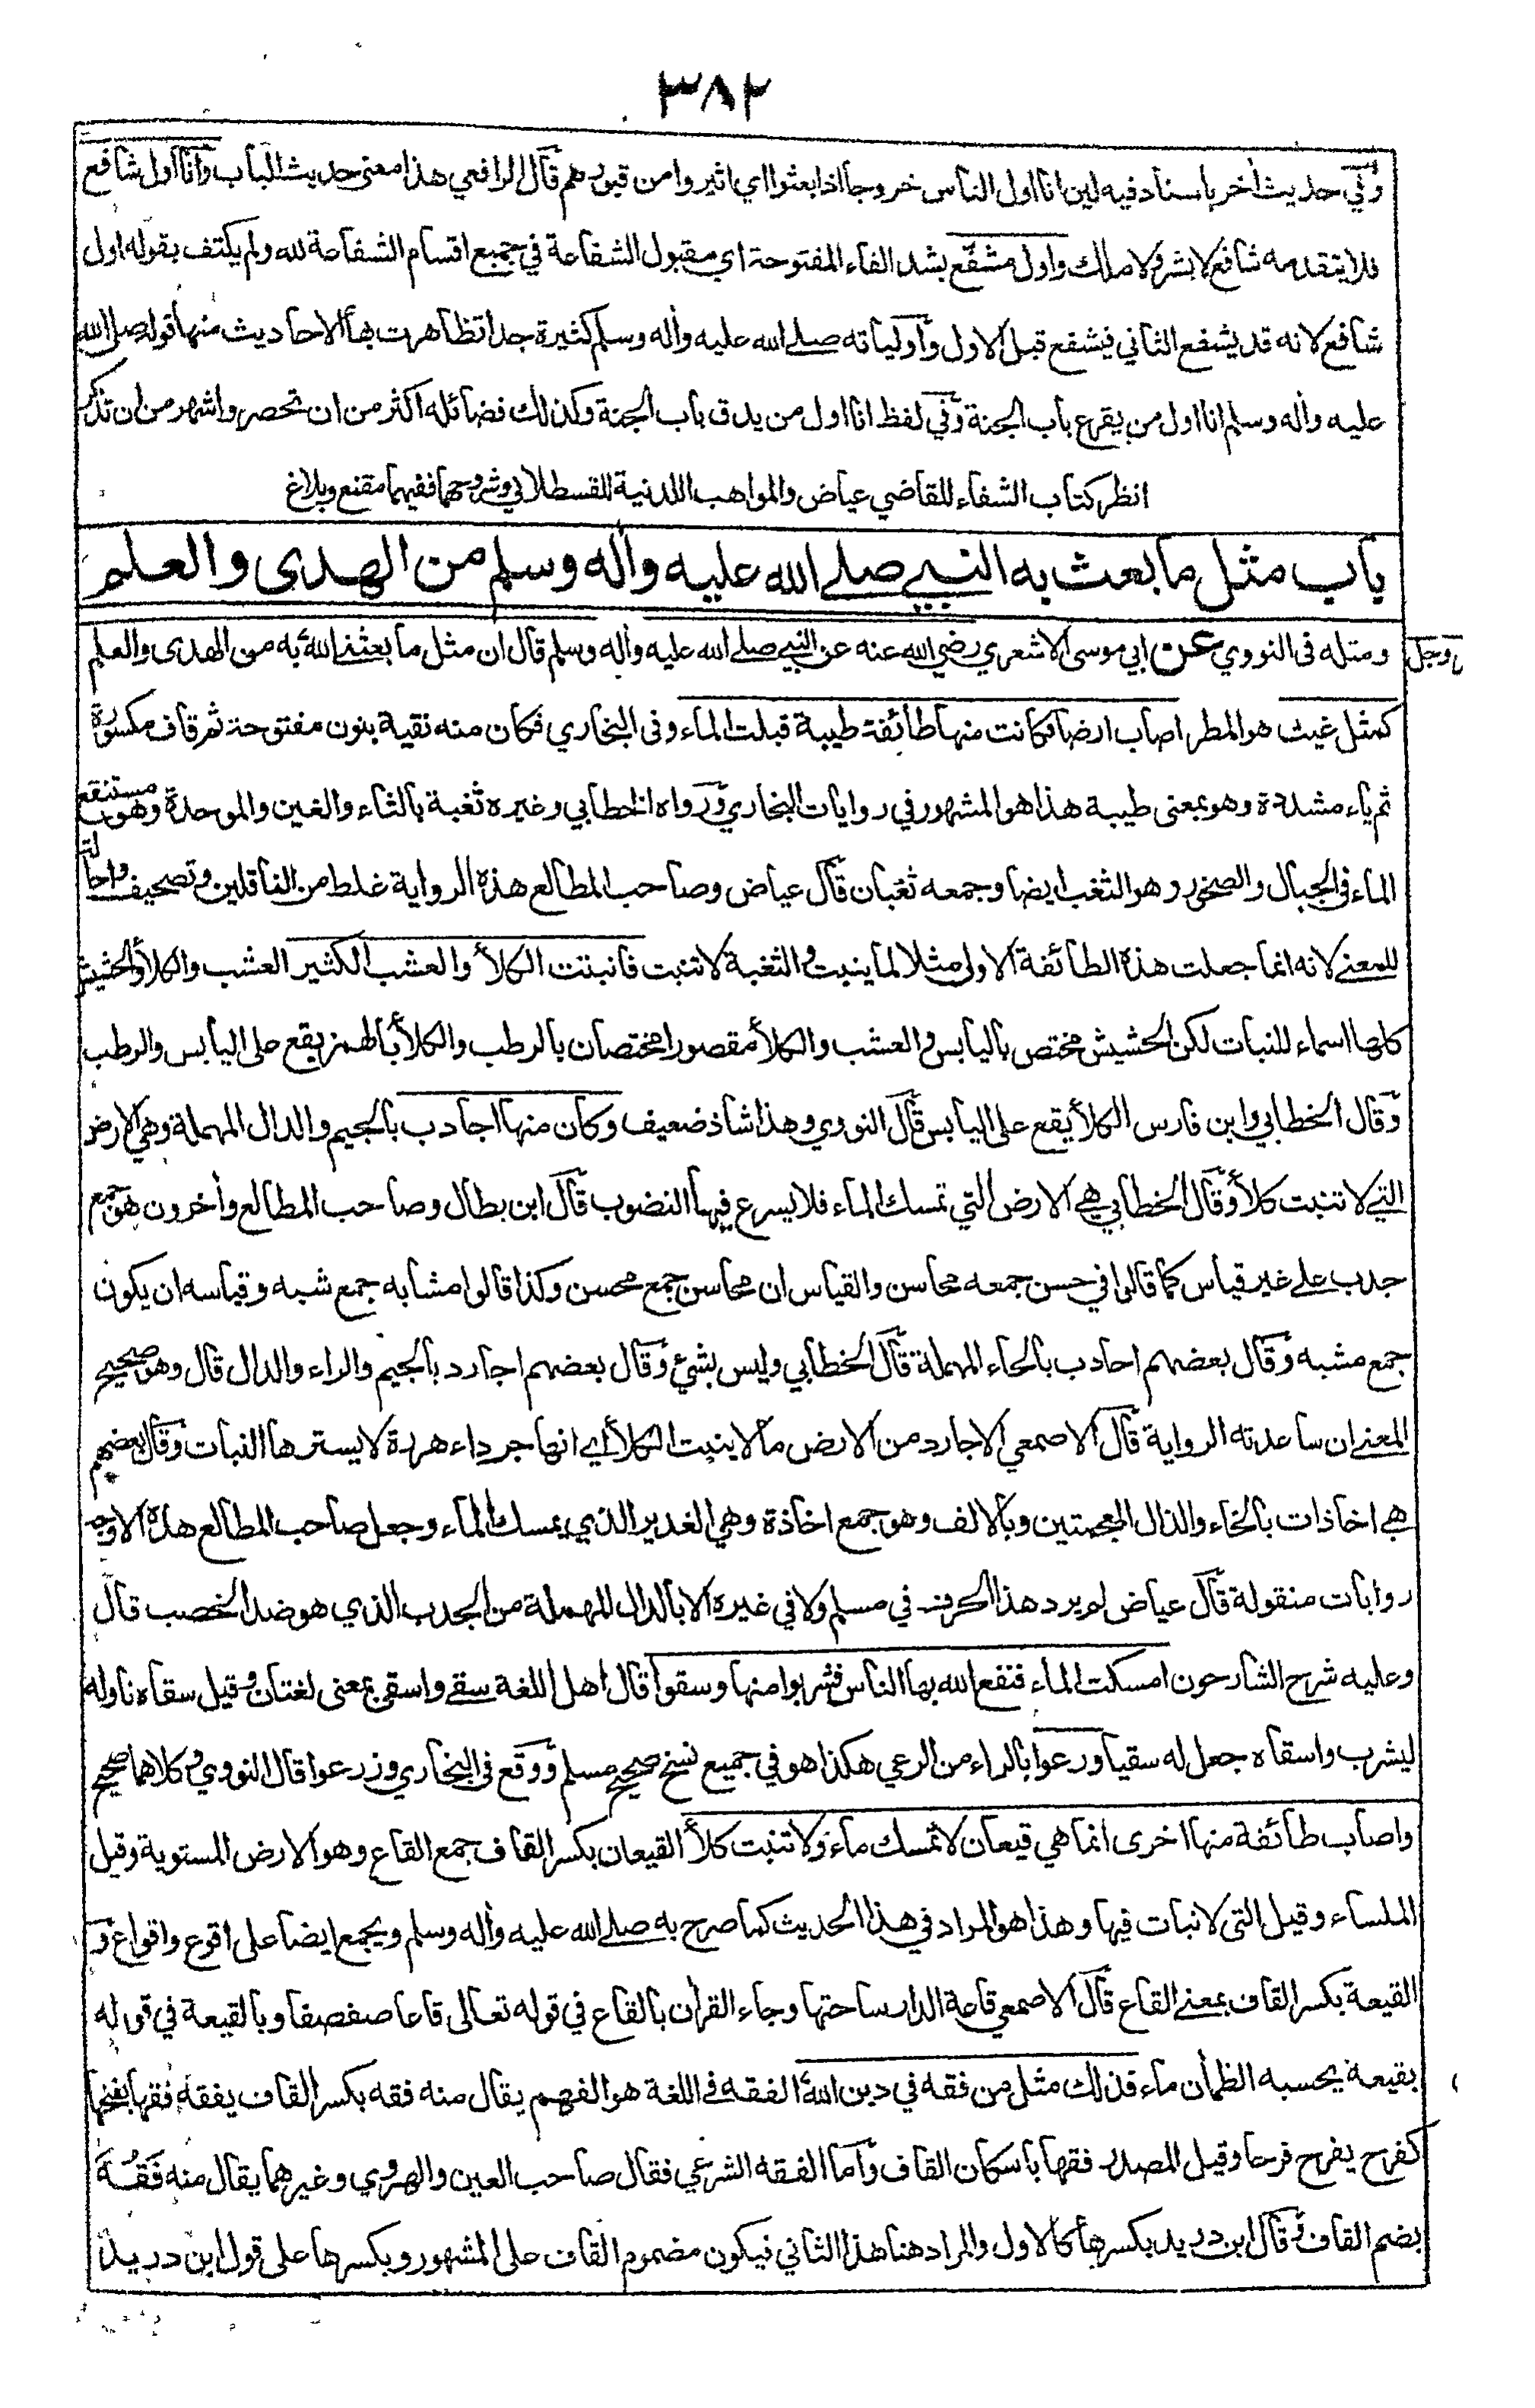 ٣٨٢
وفي حديث أخر باسناد فيه لين انا اول الناس خروجا اذا بعثوا اي اثيروا من قبورهم قال الرافعي هذا معنى حديث الباب وانا اول شافع
فلا يتقدمه شافع لا بشر ولا ملك واول مشفّع بشد الفاء المفتوحة اي مقبول الشفاعة في جميع اقسام الشفاعة لله ولم يكتف بقوله اول
شافع لانه قد يشفع الثاني فيشفع قبل الاول وأولياته صلى الله عليه وأله وسلم كثيرة جدا تظاهرت بها الاحاديث منها قوله صلى الله
عليه وأله وسلم انا اول من يقرع باب الجنة وفي لفظ انا اول من يدق باب الجنة وكذلك فضائله اكثر من ان تحصر واشهر من ان تذكر
انظر كتاب الشفاء للقاضي عياض والمواهب اللدنية للقسطلاني وشروحهما ففيهما مقنع وبلاغ
باب مثل ما بعث به النبي صلى الله عليه وأله وسلم من الهدى والعلم
ومثله فى النووي عن ابي موسى الاشعري رضي الله عنه عن النبي صلى الله عليه وأله وسلم قال ان مثل ما بعثني الله به من الهدى والعلم
وجل
كمثل غيث هو المطر اصاب ارضا فكانت منها طائفة طيبة قبلت الماء وفى البخاري فكان منه نقية بنون مفتوحة ثم قاف مكسورة
ثم ياء مشددة وهو بمعنى طيبة هذا هو المشهور في روايات البخاري ورواه الخطابي وغيره ثغبة بالثاء والغين والموحدة وهو مستنقع
الماء فى الجبال والصخور وهو الثغب ايضا وجمعه ثغبان قال عياض وصاحب المطالع هذه الرواية غلط من الناقلين وتصحيف واحالة
للمعنى لانه انما جعلت هذه الطائفة الاولى مثلا لما ينبت والثغبة لا تنبت فانبتت الكلأ والعشب الكثير العشب والكلأ والحشيش
كلها اسماء للنبات لكن الحشيش مختص باليابس والعشب والكلأ مقصورا مختصان بالرطب والكلأ بالهمز يقع على اليابس والرطب
وقال الخطابي وابن فارس الكلأ يقع على اليابس قال النووي وهذا شاذ ضعيف وكان منها اجادب بالجيم والدال المهملة وهي الارض
التي لا تنبت كلأ وقال الخطابي هي الارض التي تمسك الماء فلا يسرع فيها النضوب قال ابن بطال وصاحب المطالع وأخرون هو جمع
جدب على غير قياس كما قالوا في حسن جمعه محاسن والقياس ان محاسن جمع محسن وكذا قالوا مشابه جمع شبه وقياسه ان يكون
جمع مشبه وقال بعضهم احادب بالحاء المهملة قال الخطابي وليس بشئ وقال بعضهم اجارد بالجيم والراء والدال قال وهو صحيح
المعنى ان ساعدته الرواية قال الاصمعي الاجارد من الارض مالا ينبت الكلأ اي انها جرداء هردة لا يسترها النبات وقال بعضهم
هي اخاذات بالخاء والذال المعجمتين وبالالف وهو جمع اخاذة وهي الغدير الذي يمسك الماء وجعل صاحب المطالع هذه الاوجه
روايات منقولة قال عياض لم يرد هذا الحرف في مسلم ولا في غيره الا بالدال المهملة من الجدب الذي هو ضد الخصب قال
وعليه شرح الشارحون امسكت الماء فنفع الله بها الناس فشربوا منها وسقوا قال اهل اللغة سقى واسقى بمعنى لغتان وقيل سقاه ناوله
ليشرب واسقاه جعل له سقيا ورعوا بالراء من الرعي هكذا هو في جميع نسخ صحيح مسلم ووقع فى البخاري وزرعوا قال النووي وكلاهما صحيح
واصاب طائفة منها اخرى انما هي قيعان لا تمسك ماء ولا تنبت كلأ القيعان بكسر القاف جمع القاع وهو الارض المستوية وقيل
الملساء وقيل التى لا نبات فيها وهذا هو المراد في هذا الحديث كما صرح به صلى الله عليه وأله وسلم ويجمع ايضا على اقوع واقواع و
القيعة بكسر القاف بمعنى القاع قال الاصمعي قاعة الدار ساحتها وجاء القرأن بالقاع في قوله تعالى قاعا صفصفا وبالقيعة في قوله
بقيعة يحسبه الظمأن ماء فذلك مثل من فقه في دين الله الفقه فى اللغة هو الفهم يقال منه فقه بكسر القاف يفقه فقها بفتحها
كفرح يفرح فرحا وقيل المصدر فقها باسكان القاف واما الفقه الشرعي فقال صاحب العين والهروي وغيرهما يقال منه فَقُهَ
بضم القاف وقال ابن دريد بكسرها كالاول والمراد هنا هذا الثاني فيكون مضموم القاف على المشهور وبكسرها على قول ابن دريد